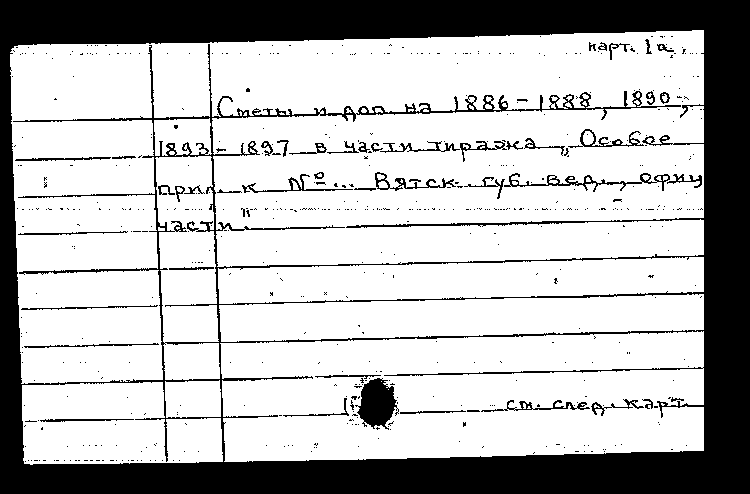 карт. 1а.
Сметы и доп. на 1886-1888, 1890,
1893-1897 в части тиража „Особое
прил. к №... Вятск. губ. вед., офиц
части."
см. след. карт.